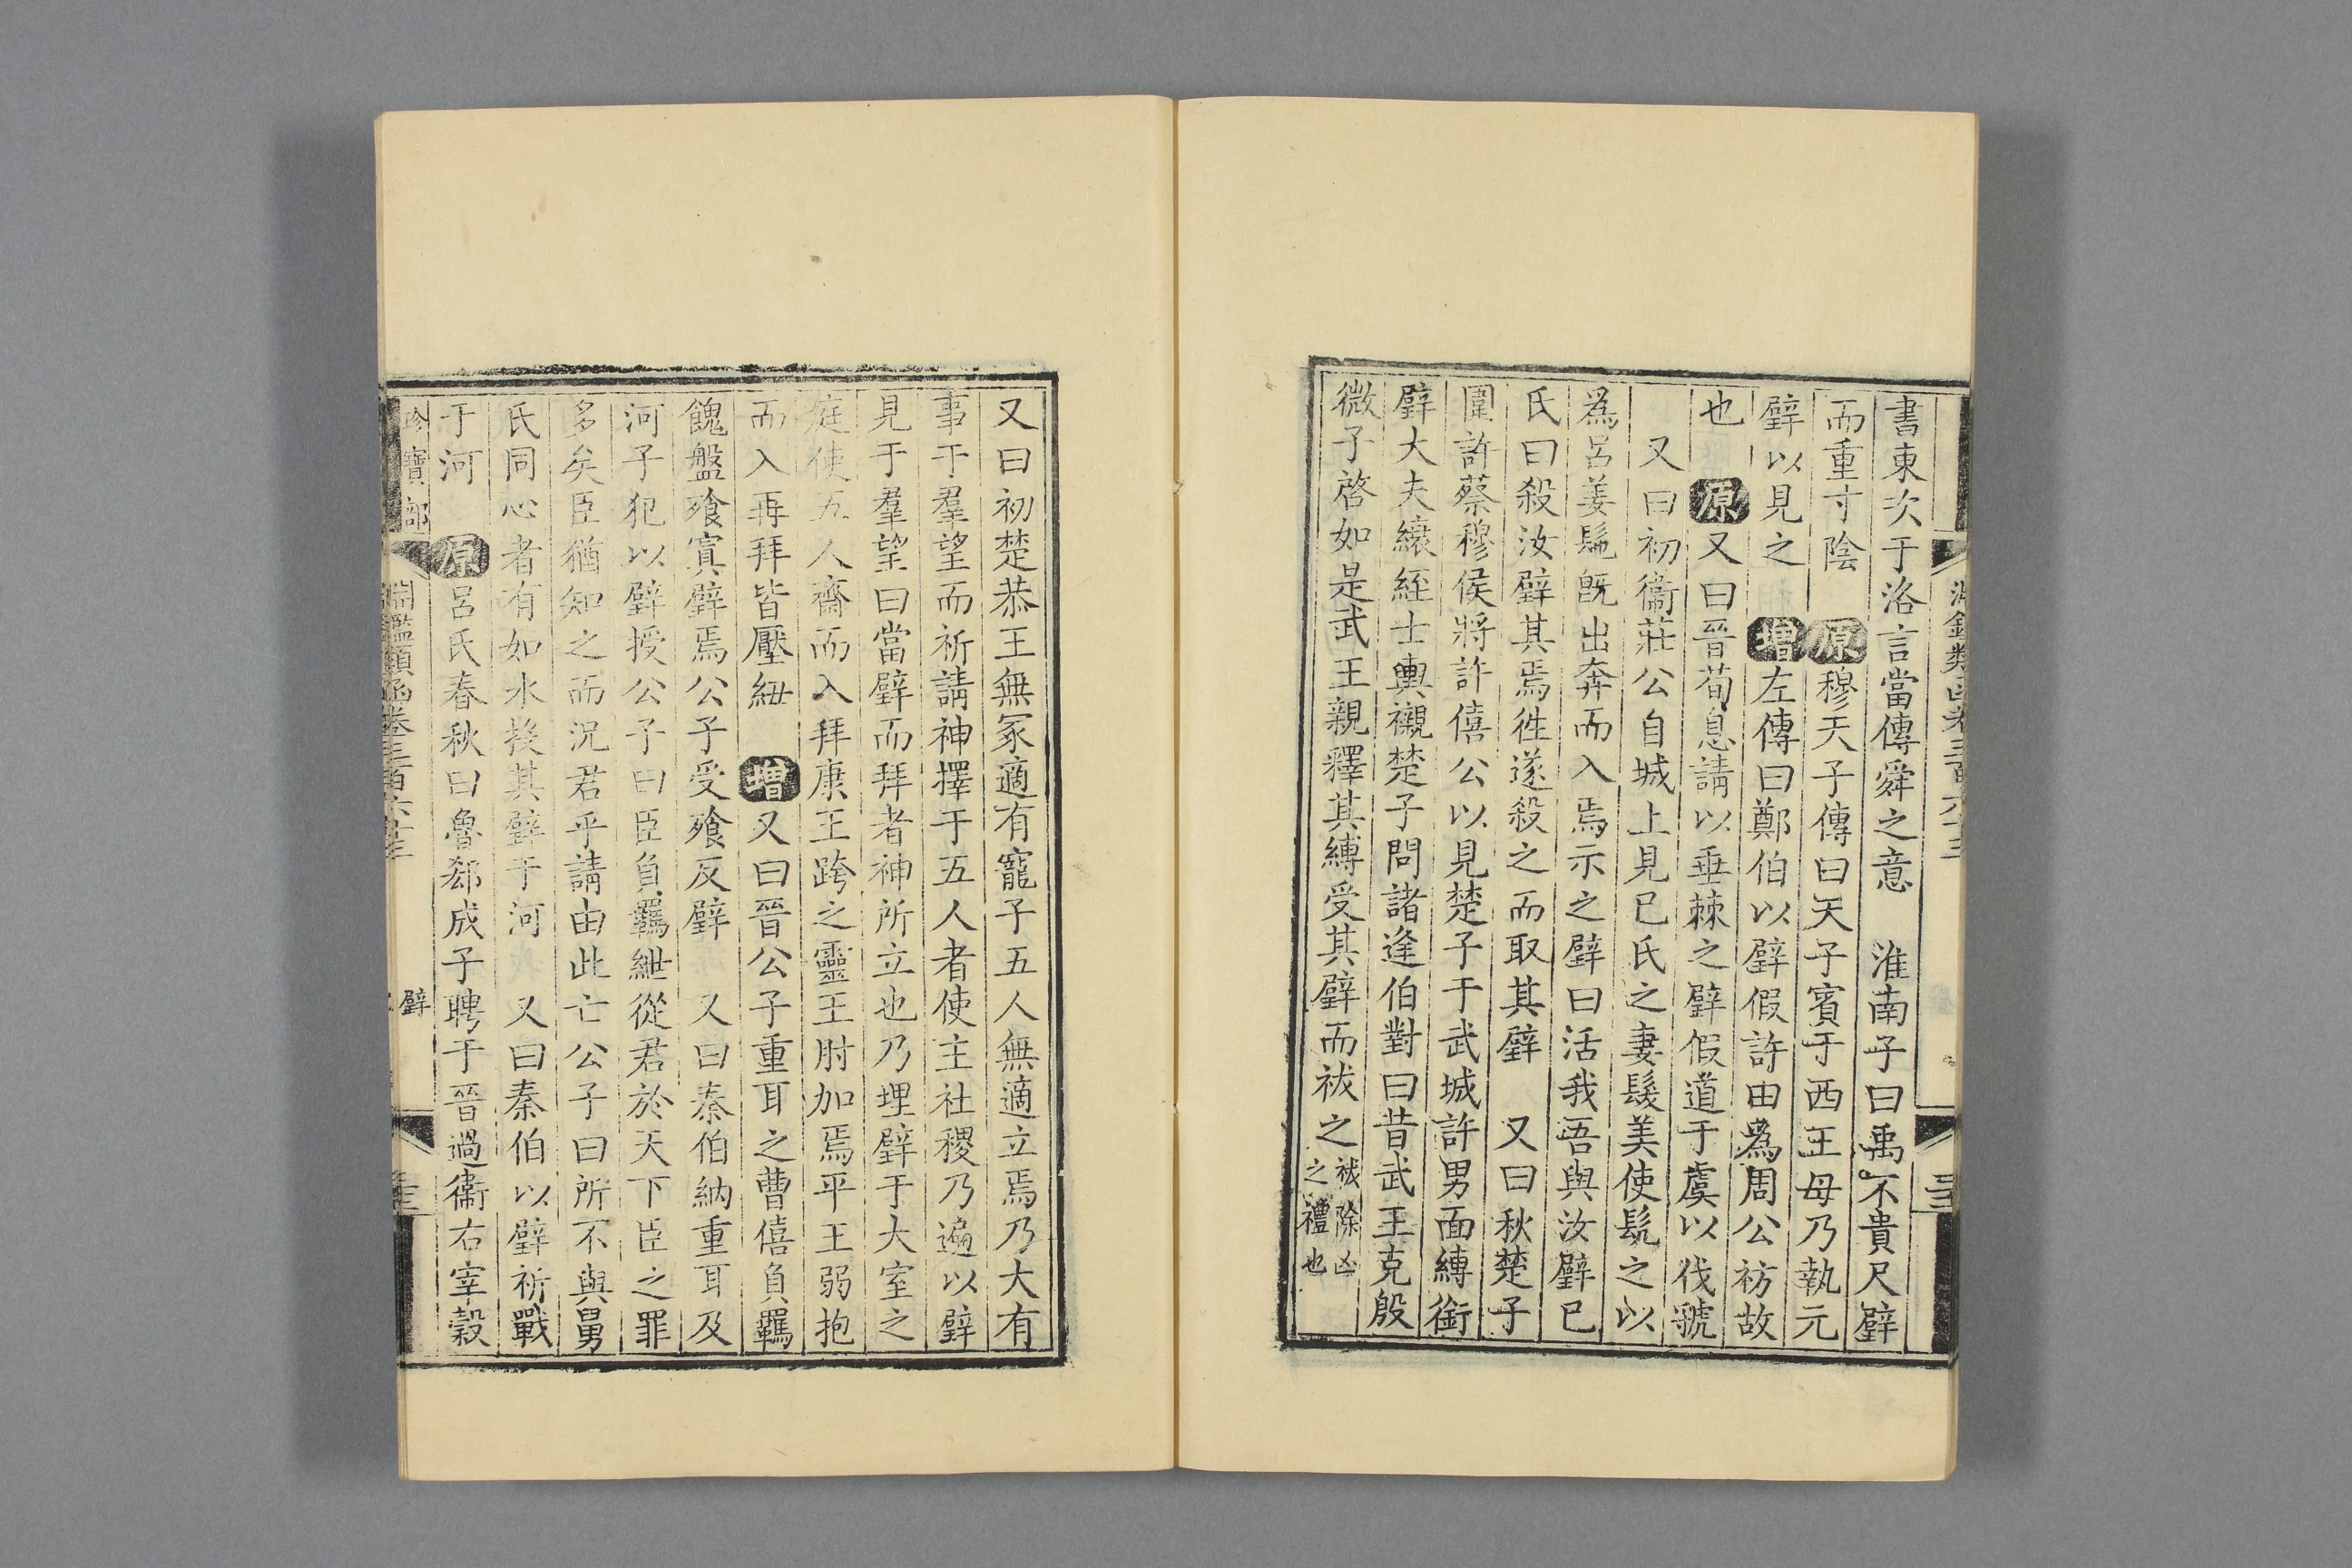 書東次于洛言當傳舜之意 淮南子曰禹不貴尺璧
而重寸陰 原穆天子傳曰天子賓于西王母乃執元
璧以見之 增左傳曰鄭伯以璧假許田為周公祊故
也 原又曰晉荀息請以垂棘之璧假道于虞以伐虢
又曰初衞莊公自城上見已氏之妻髮美使髡之以
為呂姜髢旣出奔而入焉示之璧曰活我吾與汝璧已
氏曰殺汝璧其焉徃遂殺之而取其璧 又曰秋楚子
圍許蔡穆侯將許僖公以見楚子于武城許男面縛銜
璧大夫縗絰士輿櫬楚子問諸逢伯對曰昔武王克殷
微子啓如是武王親釋其縛受其璧而祓之祓除凶之禮也
又曰初楚恭王無冢適有寵子五人無適立焉乃大有
事于羣望而祈請神擇于五人者使主社稷乃遍以璧
見于羣望曰當璧而拜者神所立也乃埋璧于大室之
庭使五人齋而入拜康王跨之靈王肘加焉平王弱抱
而入再拜皆壓紐 增又曰晉公子重耳之曹僖負羈
餽盤飱寘璧焉公子受飱反璧 又曰秦伯納重耳及
河子犯以璧授公子曰臣負羈紲從君於天下臣之罪
多矣臣猶知之而況君乎請由此亡公子曰所不與舅
氏同心者有如水投其璧于河 又曰秦伯以璧祈戰
于河 原呂氏春秋曰魯郄成子聘于晉過衞右宰穀
珍寶部 淵鑑類函卷三百六十三 璧